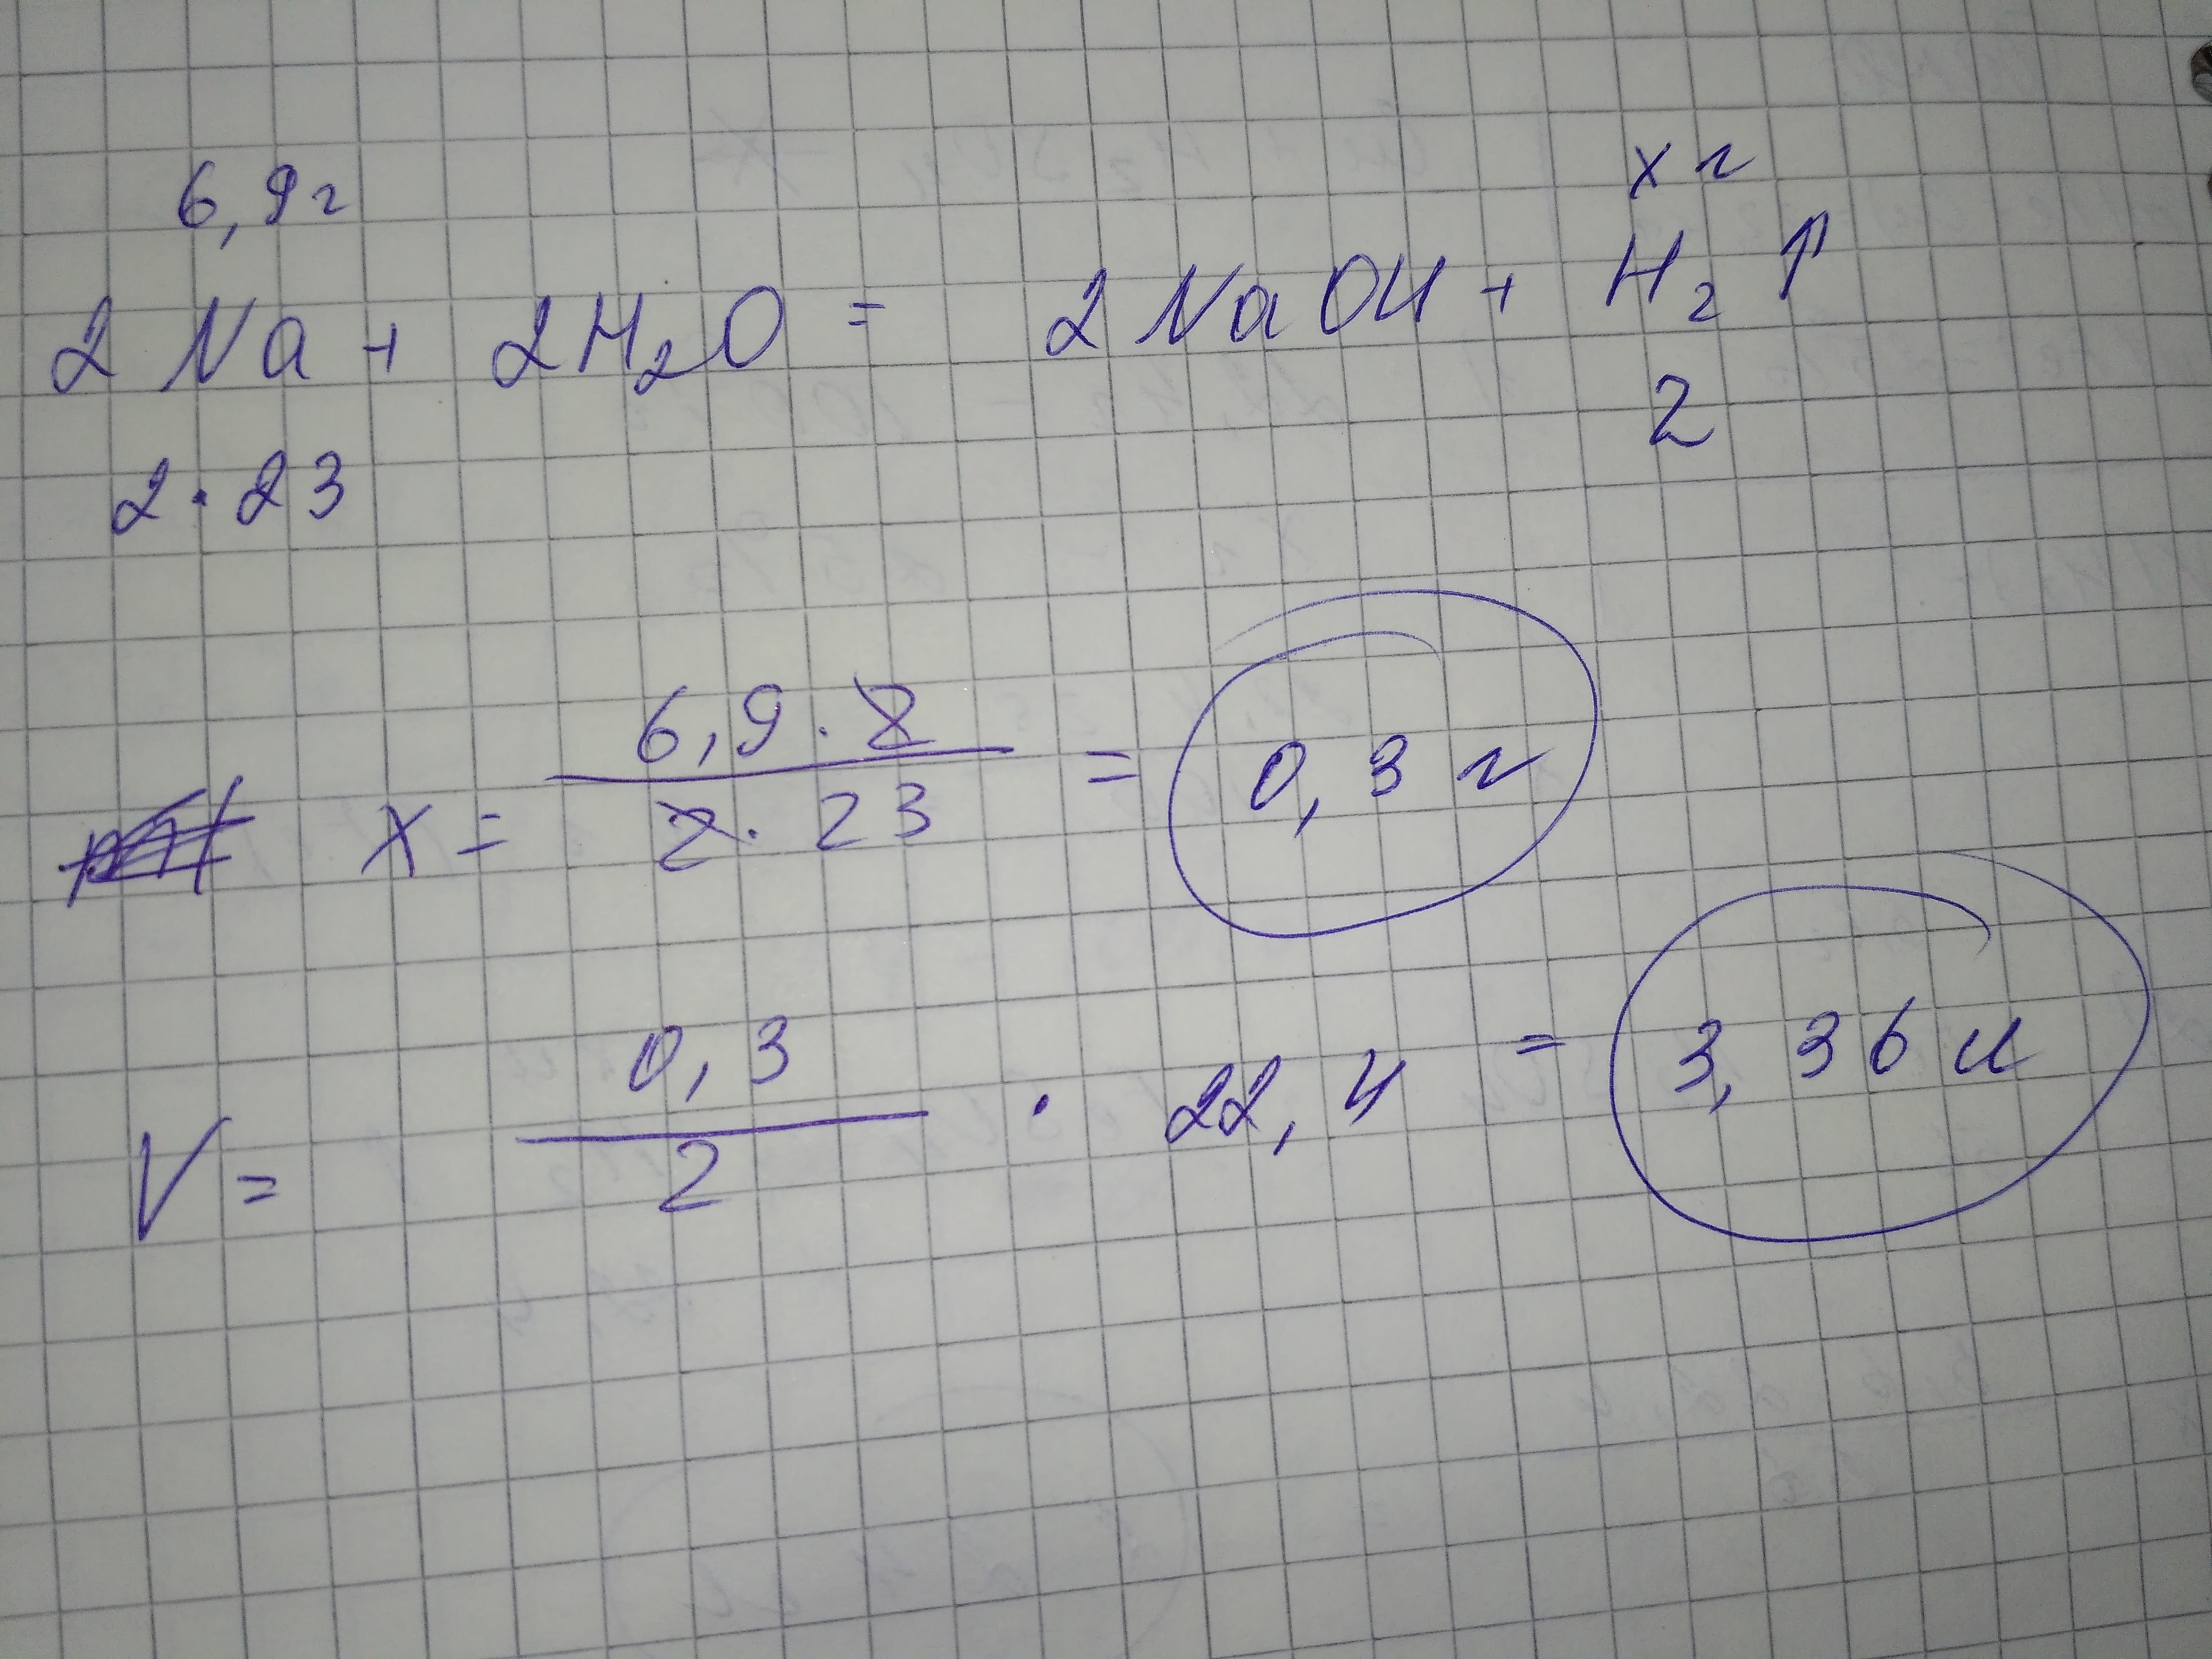 6,9г
x г
2 Na + 2H₂O = 2 NaOH + H₂ ↑
2 · 23
2
x = 6,9 · 2 / 2 · 23 = 0,3 г
V = 0,3 / 2 · 22,4 = 3,36 л